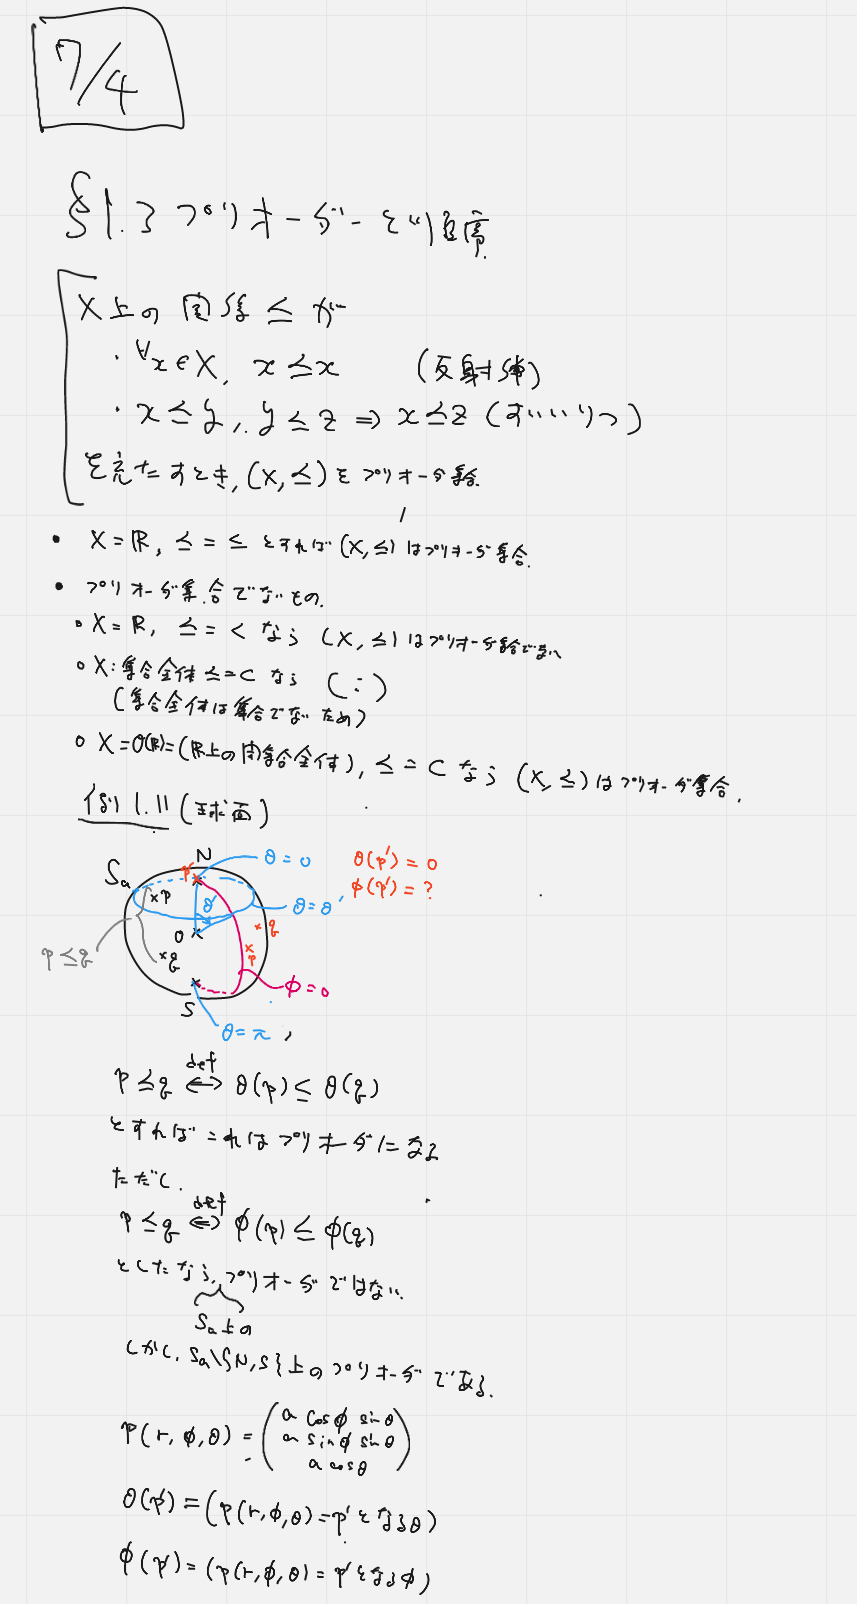 7/4
§1.3 プリオーダーと順序.
X上の関係 ≦ が
・∀x∈X, x≦x (反射律)
・x≦y, y≦z ⇒ x≦z (すいいりつ)
を充たすとき, (X, ≦)をプリオーダ集合.
• X=ℝ, ≦=≤ とすれば (X, ≦)はプリオーダ集合.
• プリオーダ集合でないもの.
∘ X=ℝ, ≦=< なら (X, ≦)はプリオーダ集合でない
∘ X:集合全体 ≦=⊂ なら (:)
(集合全体は集合でないため)
∘ X=O(ℝ)=(ℝ上の開集合全体), ≦=⊂ なら (X, ≦)はプリオーダ集合.
例1.11 (球面)
N
θ=0
θ(p')=0
φ(p')=?
Sa
p'
p
θ'
θ=θ'
O
q
p
p≦q
q
φ=0
S
θ=π
p≦q ⟺def θ(p)≤θ(q)
とすればこれはプリオーダになる
ただし.
p≦q ⟺def φ(p)≤φ(q)
としたなら, プリオーダではない.
Sa上の
しかし, Sa\{N,S}上のプリオーダである.
p(r, φ, θ) = (a cosφ sinθ
a sinφ sinθ
a cosθ)
θ(p') = (p(r,φ,θ)=p'となるθ)
φ(p') = (p(r,φ,θ)=p'となるφ)